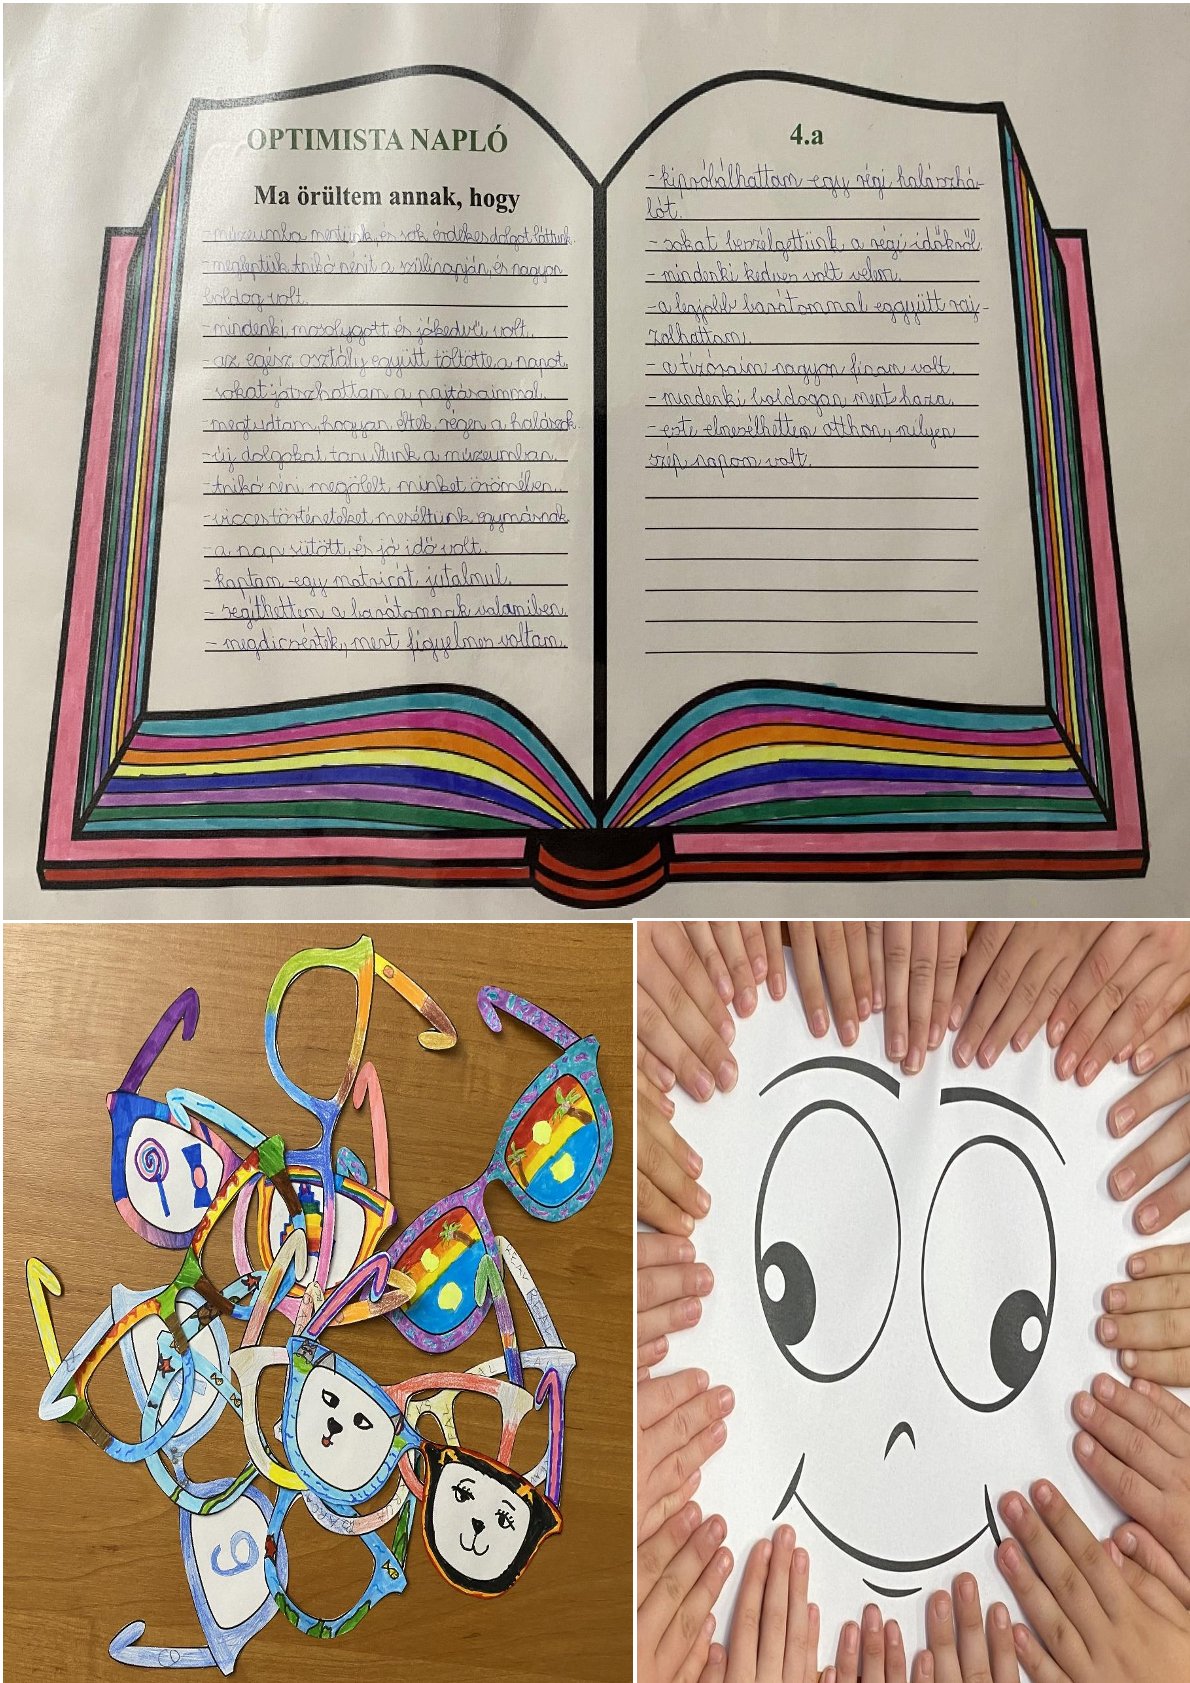 OPTIMISTA NAPLÓ
Ma örültem annak, hogy
- múzeumba mentünk, és sok érdekes dolgot láttunk.
- megleptük Enikő nénit a szülinapján, és nagyon
boldog volt.
- mindenki mosolygott és jókedvű volt.
- az egész osztály együtt töltötte a napot.
- sokat játszhattam a pajtásaimmal.
- megtudtam, hogyan éltek régen a halászok.
- új dolgokat tanultunk a múzeumban.
- Enikő néni megölelt minket örömében.
- vicces történeteket meséltünk egymásnak.
- a nap sütött, és jó idő volt.
- kaptam egy matricát jutalmul.
- segíthettem a barátomnak valamiben.
- megdicsértek, mert figyelmes voltam.
4.a
- kipróbálhattam egy régi halászhá-
lót.
- sokat beszélgettünk a régi időkről.
- mindenki kedves volt velem.
- a legjobb barátommal eggyütt raj-
zolhattam.
- a tízóraim nagyon finom volt.
- mindenki boldogan ment haza.
- este elmesélhettem otthon, milyen
szép napom volt.